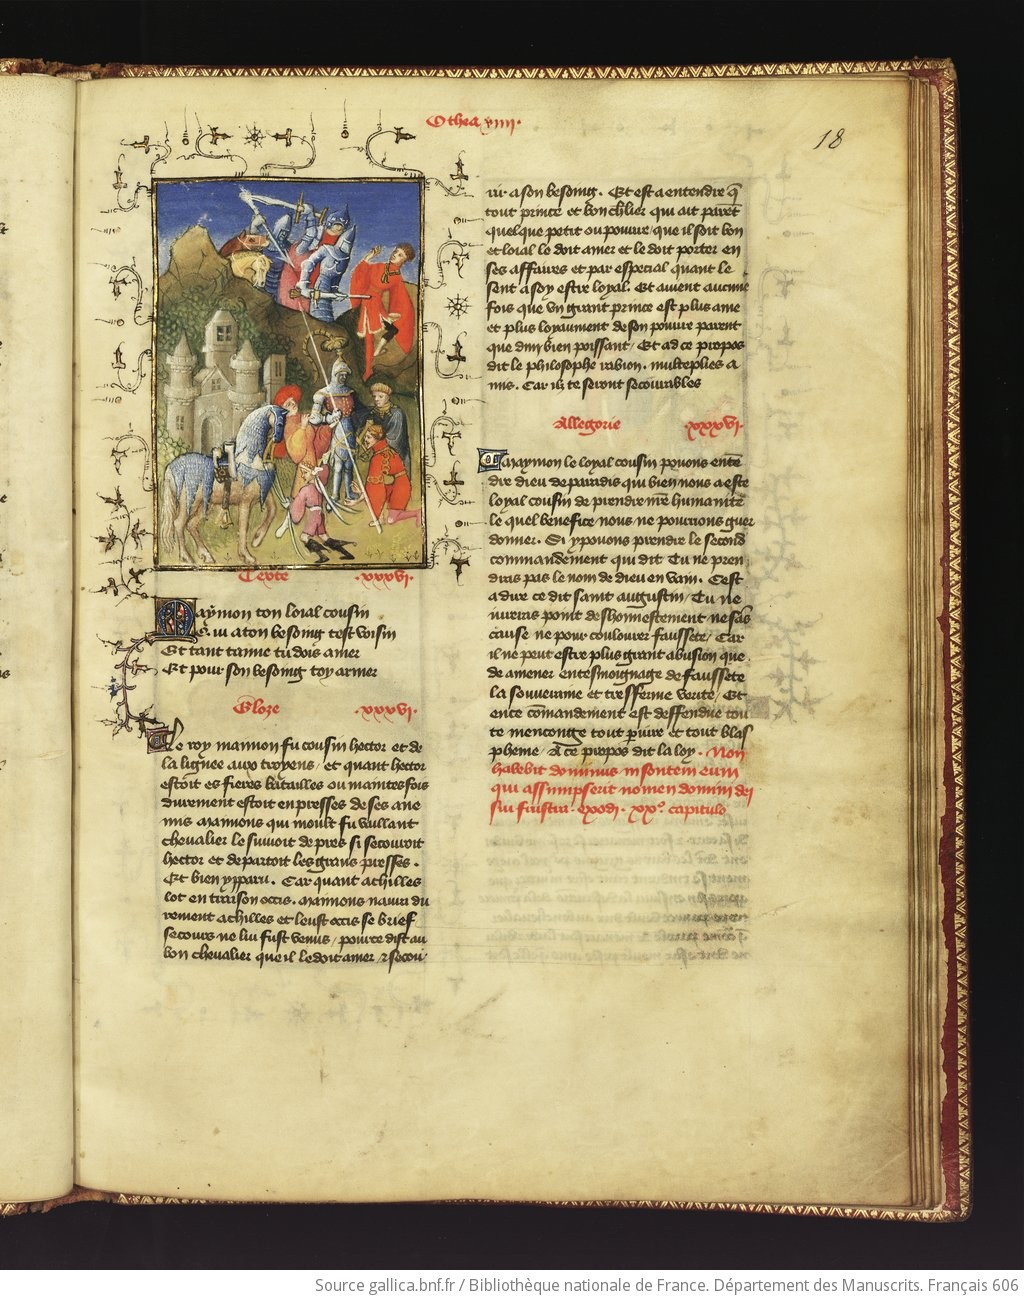 Othea xviii.
18
Texte .xxxvi.
Maymon ton loial cousin
Qui a ton besoing test voisin
Et tant taime tu dois amer
Et pour son besoing toy armer
Gloze .xxxvi.
Le roy mannon fu cousin hector et de
la lignee aux troyens / et quant hector
estoit es fieres batailles ou maintes fois
durement estoit en presses de ses ane
mis Mannons qui moult fu vaillant
chevalier le suivoit de pres si secouroit
hector et departoit les grans presses .
Et bien y paru . Car quant achilles
lot en traison occis . Mannons navra du
rement achilles et leust occis se brief
secours ne lui fust venus / pource dist au
bon chevalier que il le doit amer / et secou-
rir a son besoing . Et est a entendre q̄
tout prince et bon ch̄lier qui ait parēt
quelque petit ou pouvre / que il soit bon
et loial le doit amer et le doit porter en
ses affaires et par especial quant le
sent a soy estre loyal . Et avient aucune
fois que un grant prince est plus ame
et plus loyaument de son pouvre parent
que dun bien poissant / Et ad ce propos
dit le philosophe rabion . multeplies a
mis . Car ilz te seront secourables
Allegorie .xxxvi.
Maymon le loyal cousin povons entē
dre dieu de paradis qui bien nous a este
loyal cousin de prendre nr̄e humanite
le quel benefice nous ne pourrions guer
donner . Si y povons prendre le second
commandement qui dit Tu ne pren
diras pas le nom de dieu en vain . Cest
a dire ce dit saint augustin / Tu ne
iureras point deshonnestement ne sās
cause ne pour coulourer faussete / Car
il ne peut estre plus grant abusion que
de amener en tesmoignage de faussete
la souveraine et tresferme verite / Et
en ce cōmandement est deffendue tou
te mençonge tout periure et tout blas
pheme / A ce propos dit la loy . Non
habebit dominus insontem eum
qui assumpserit nomen domini dei
sui frustra . exodi . xx°. capitulo
Source gallica.bnf.fr / Bibliothèque nationale de France. Département des Manuscrits. Français 606